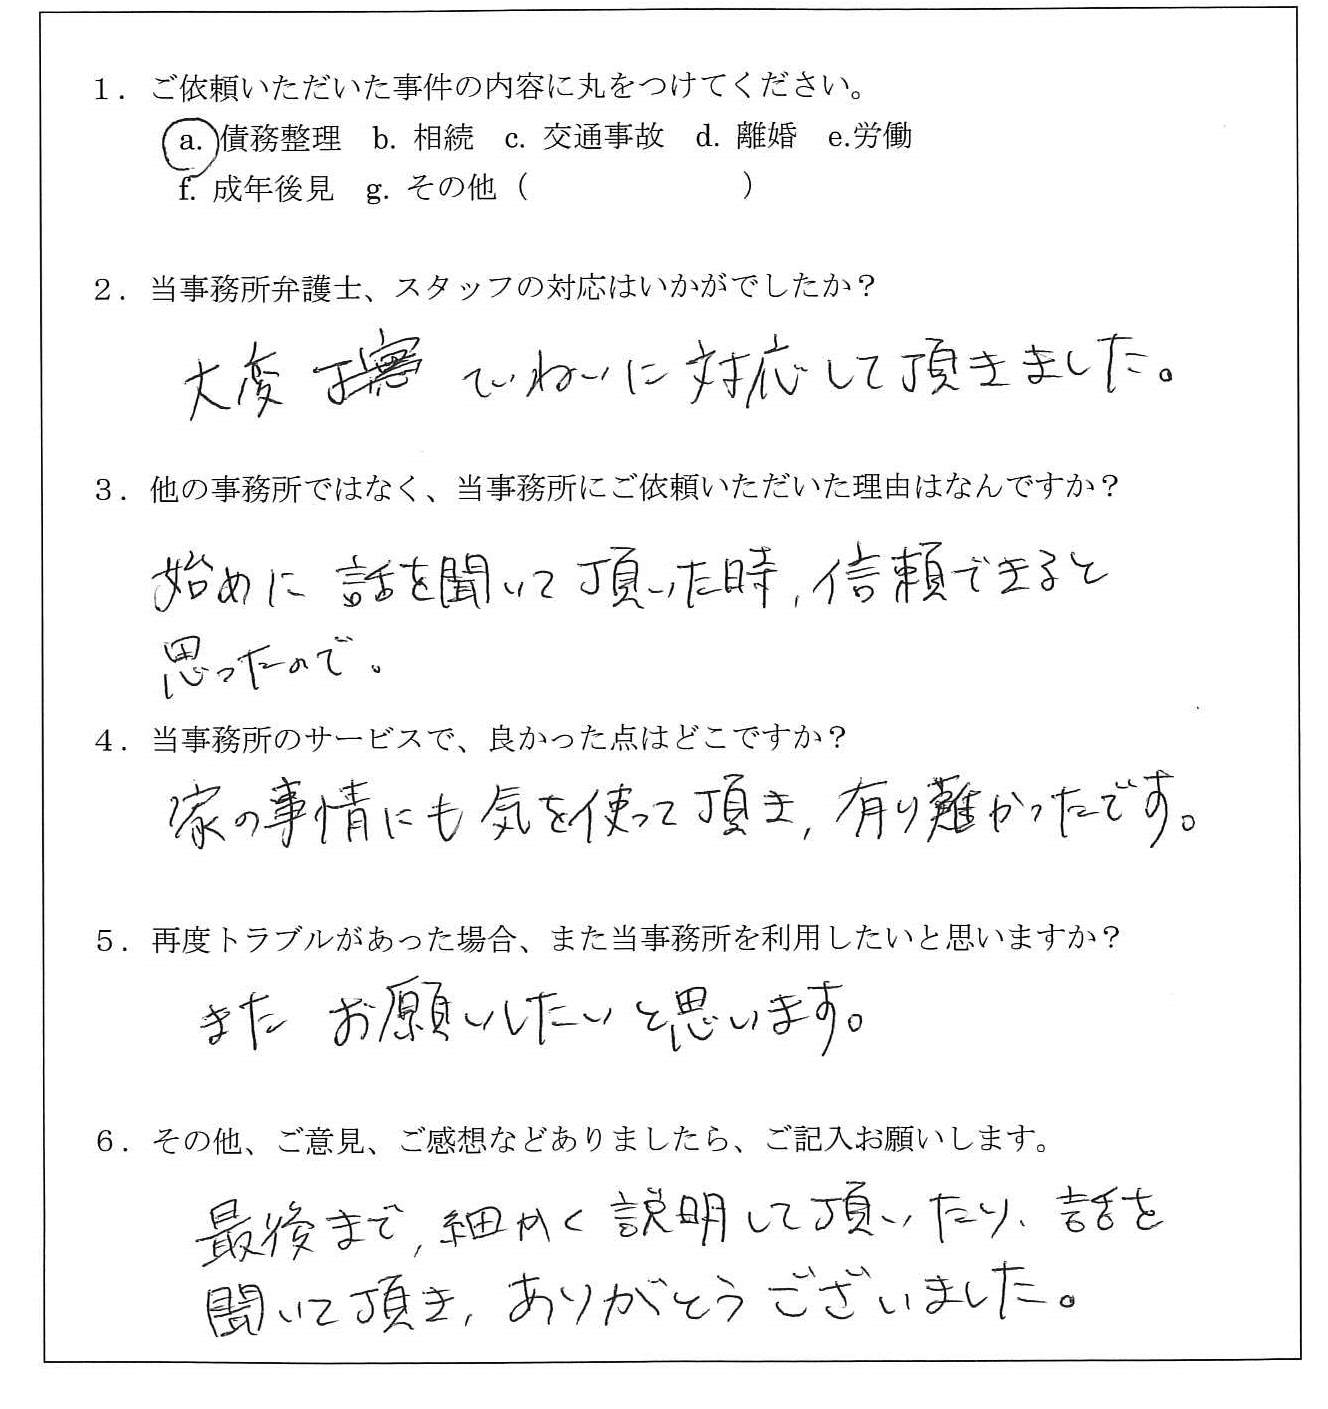 １．ご依頼いただいた事件の内容に丸をつけてください。
a. 債務整理　b. 相続　c. 交通事故　d. 離婚　e.労働
f. 成年後見　g. その他（　　　　　　　）
２．当事務所弁護士、スタッフの対応はいかがでしたか？
大変 ていねいに対応して頂きました。
３．他の事務所ではなく、当事務所にご依頼いただいた理由はなんですか？
始めに 話を聞いて頂いた時，信頼できると
思ったので。
４．当事務所のサービスで、良かった点はどこですか？
家の事情にも気を使って頂き，有り難かったです。
５．再度トラブルがあった場合、また当事務所を利用したいと思いますか？
また お願いしたいと思います。
６．その他、ご意見、ご感想などありましたら、ご記入お願いします。
最後まで，細かく説明して頂いたり、話を
聞いて頂き，ありがとうございました。